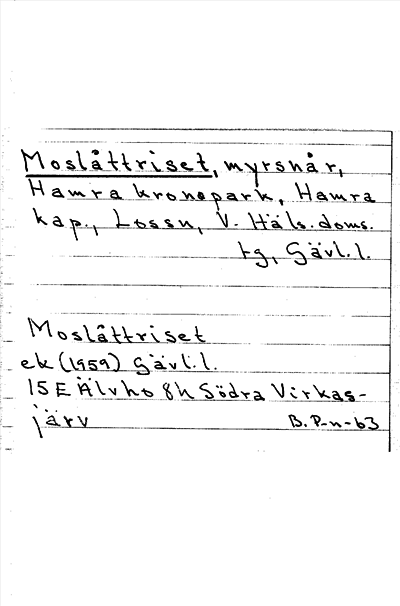 Moslåttriset, myrsnår,
Hamra kronopark, Hamra
kap., Lossn, V. Häls. doms.
tg, Gävl. l.
Moslåttriset
ek (1959) Gävl. l.
15E Älvho 8h Södra Virkas-
järv B. P-n-63